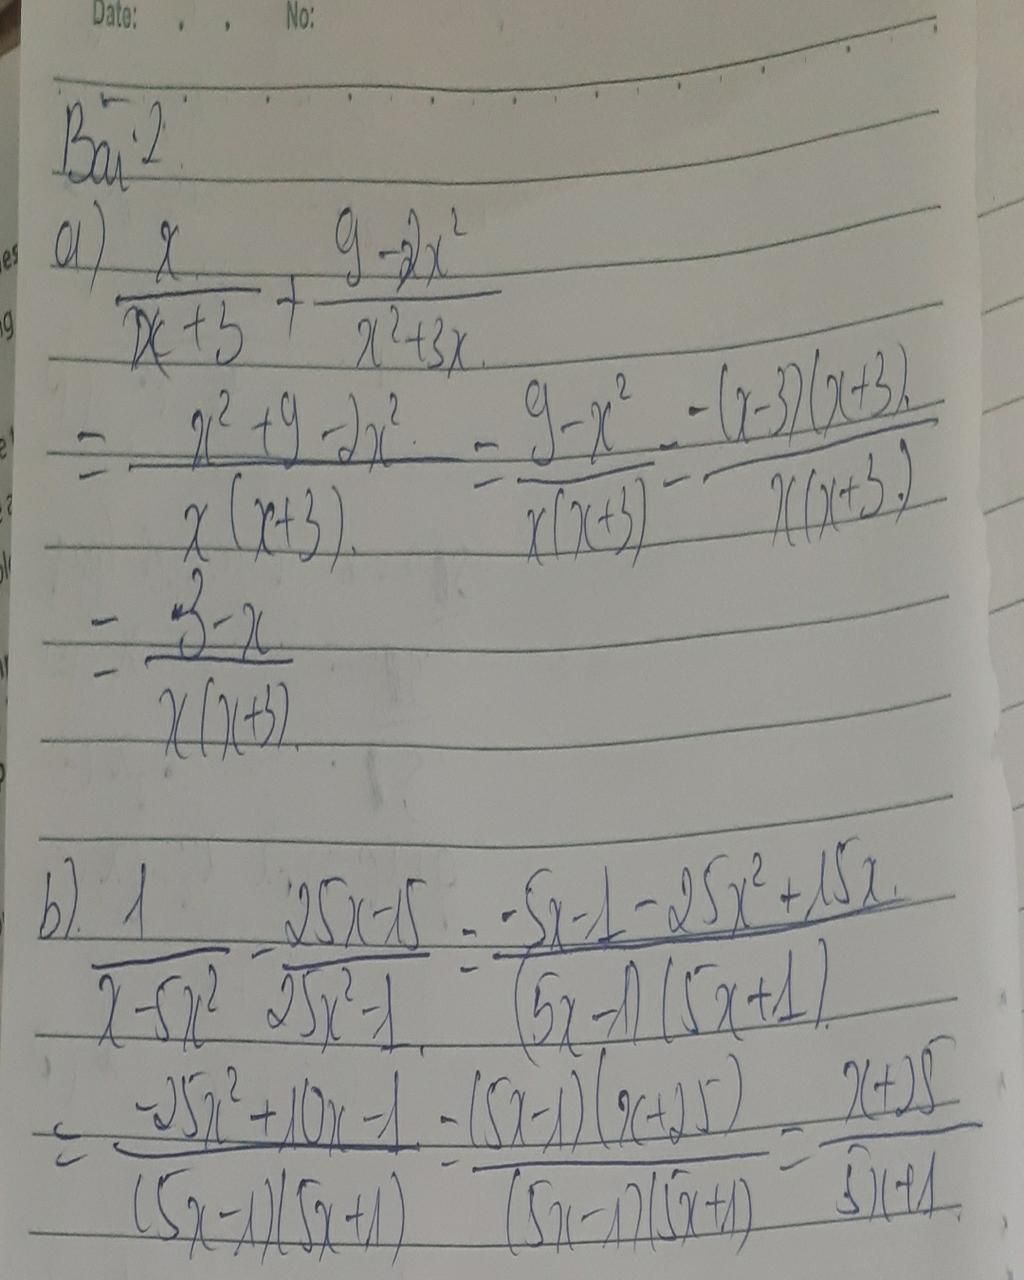 Date: . . No:
Bài 2
a) x/(x+3) + (9-2x²)/(x²+3x)
= (x²+9-2x²)/(x(x+3)) = (9-x²)/(x(x+3)) = -(x-3)(x+3)/(x(x+3))
= (3-x)/(x(x+3))
b) 1/(x-5x²) - (25x-15)/(25x²-1) = (-5x-1-25x²+15x)/((5x-1)(5x+1))
= (-25x²+10x-1)/((5x-1)(5x+1)) = (5x-1)(x+25)/((5x-1)(5x+1)) = (x+25)/(5x+1)